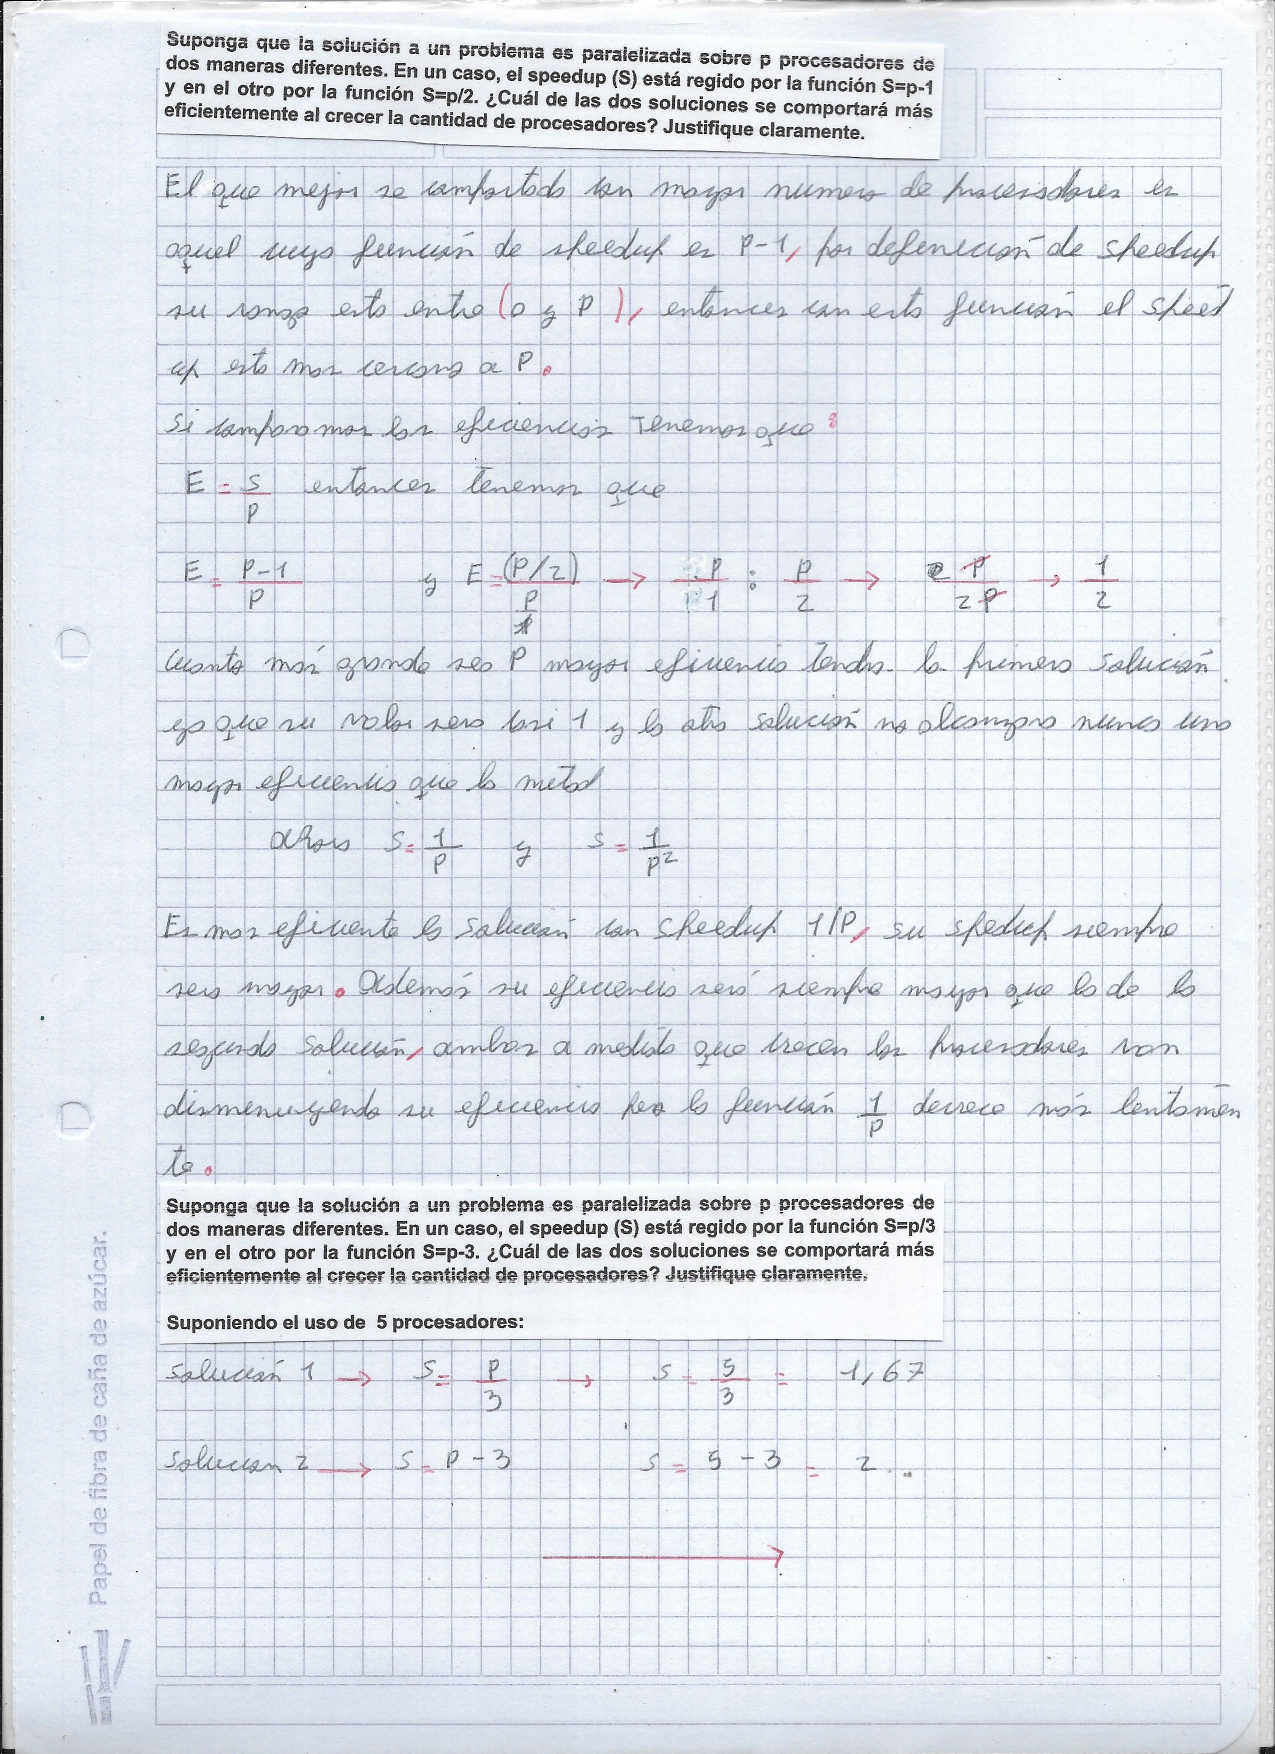 Suponga que la solución a un problema es paralelizada sobre p procesadores de
dos maneras diferentes. En un caso, el speedup (S) está regido por la función S=p-1
y en el otro por la función S=p/2. ¿Cuál de las dos soluciones se comportará más
eficientemente al crecer la cantidad de procesadores? Justifique claramente.
El que mejor se comportado con mayor numero de procesadores es
aquel cuyo función de speedup es P-1, por defenición de speedup
su rango esta entre (0 y P), entonces con esta función el speed
up esta mas cercano a P.
Si comparamos las eficiencias Tenemos que:
E = S/P entonces tenemos que
E = P-1/P y E = (P/2)/P/1 → P/1 : P/2 → 2 P/2P → 1/2
Cuanto más grande sea P mayor eficiencia tendra la primera Solución
ya que su valor sera casi 1 y la otra solución no alcanzara nunca una
mayor eficiencia que la mitad
Ahora S = 1/P y S = 1/P²
Es mas eficiente la Solución con speedup 1/P, su spedup siempre
sera mayor. Además su eficiencia será siempre mayor que la de la
segunda Solución, ambas a medida que crecen los procesadores van
dismenuyendo su eficiencia pero la función 1/P decrece más lentamen
te.
Suponga que la solución a un problema es paralelizada sobre p procesadores de
dos maneras diferentes. En un caso, el speedup (S) está regido por la función S=p/3
y en el otro por la función S=p-3. ¿Cuál de las dos soluciones se comportará más
eficientemente al crecer la cantidad de procesadores? Justifique claramente.
Suponiendo el uso de 5 procesadores:
Solución 1 → S = P/3 → S = 5/3 = 1,67
Solucion 2 → S = P - 3 S = 5 - 3 = 2
→
Papel de fibra de caña de azúcar.